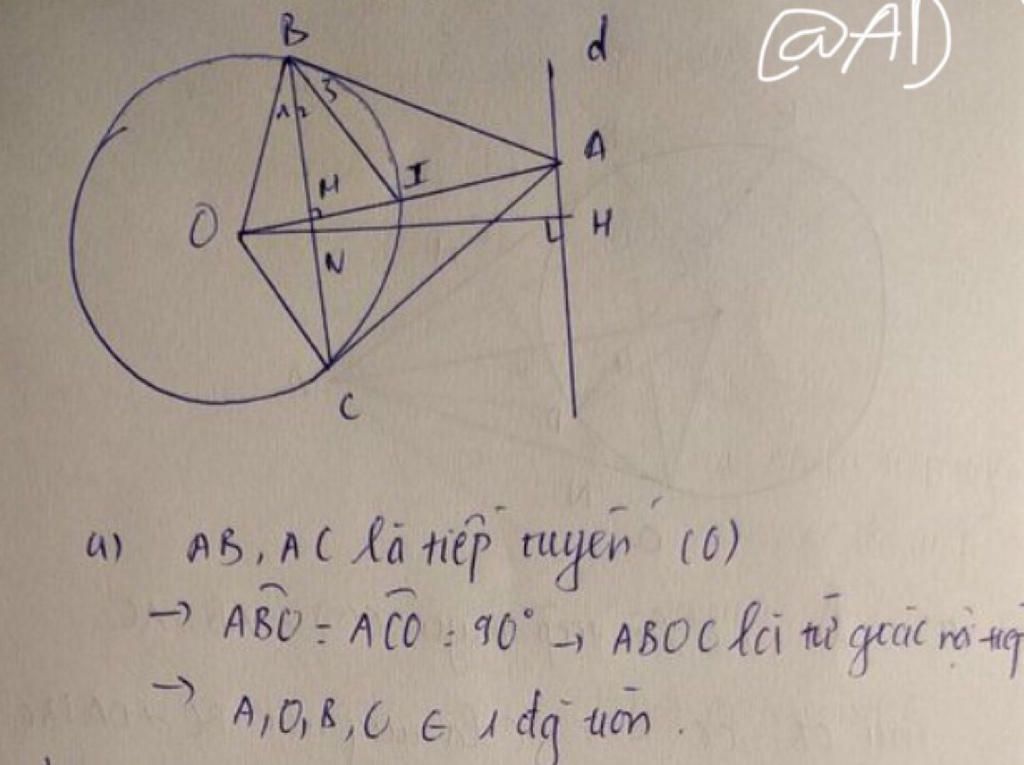 @AD
B
d
1 2 3
A
M
I
O
H
N
C
a) AB, AC là tiếp tuyến (O)
→ ABO = ACO = 90° → ABOC là tứ giác nội tiếp
→ A, O, B, C ∈ 1 đg tròn.